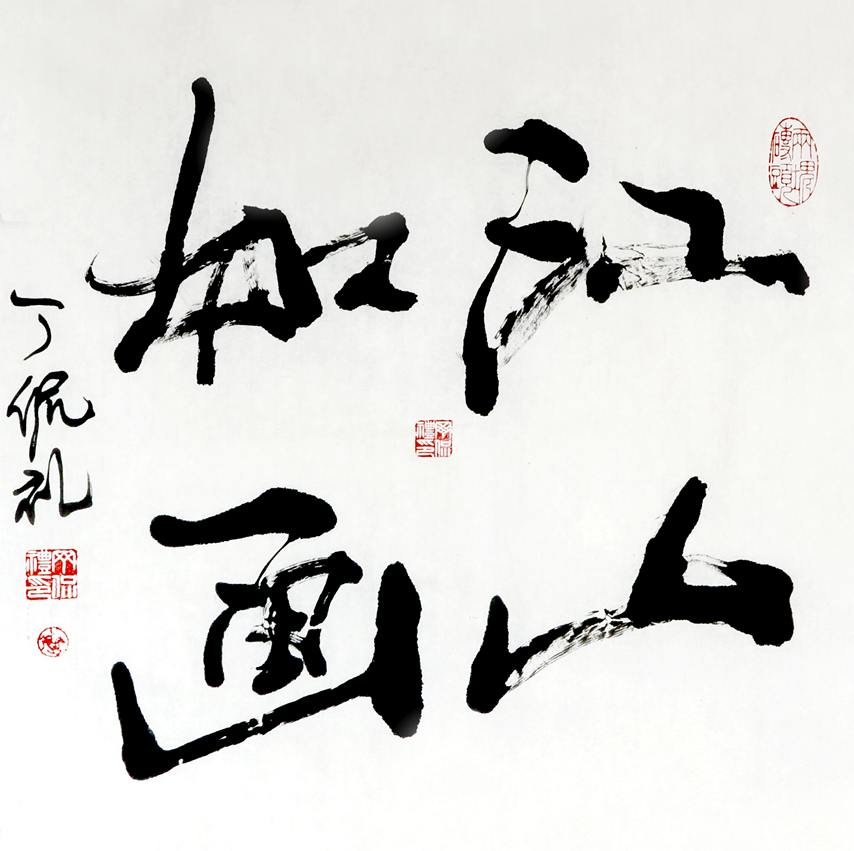 江山
如画
丁侃礼